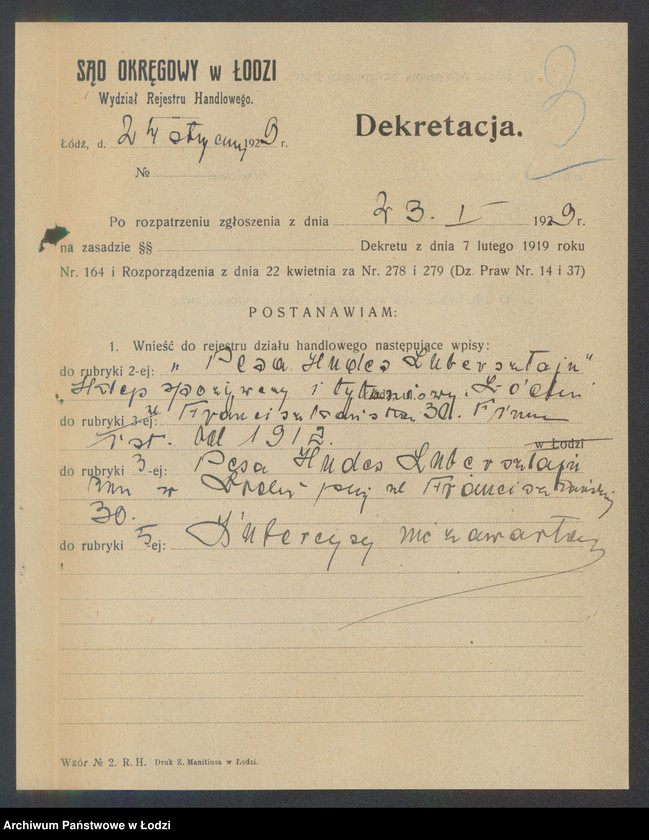 SĄD OKRĘGOWY w ŁODZI
Wydział Rejestru Handlowego.
3
Dekretacja.
Łódź, d. 24 styczny 1929 r.
№
Po rozpatrzeniu zgłoszenia z dnia 23. I 1929 r.
na zasadzie §§ Dekretu z dnia 7 lutego 1919 roku
Nr. 164 i Rozporządzenia z dnia 22 kwietnia za Nr. 278 i 279 (Dz. Praw Nr. 14 i 37)
POSTANAWIAM:
1. Wnieść do rejestru działu handlowego następujące wpisy:
do rubryki 2-ej: „Pesa Hudes Lubersztajn"
Sklep spożywczy i tytoniowy. Łódź
do rubryki 3-ej: ul Franciszkańska 30. Firma
ist. od 1912. w Łodzi
do rubryki 3-ej: Pesa Hudes Lubersztajn
zam w Łodzi przy ul Franciszkańskiej
30.
do rubryki 5-ej: Intercyzy nie zawarła
Wzór № 2. R. H. Druk Z. Manitiusa w Łodzi.
Archiwum Państwowe w Łodzi